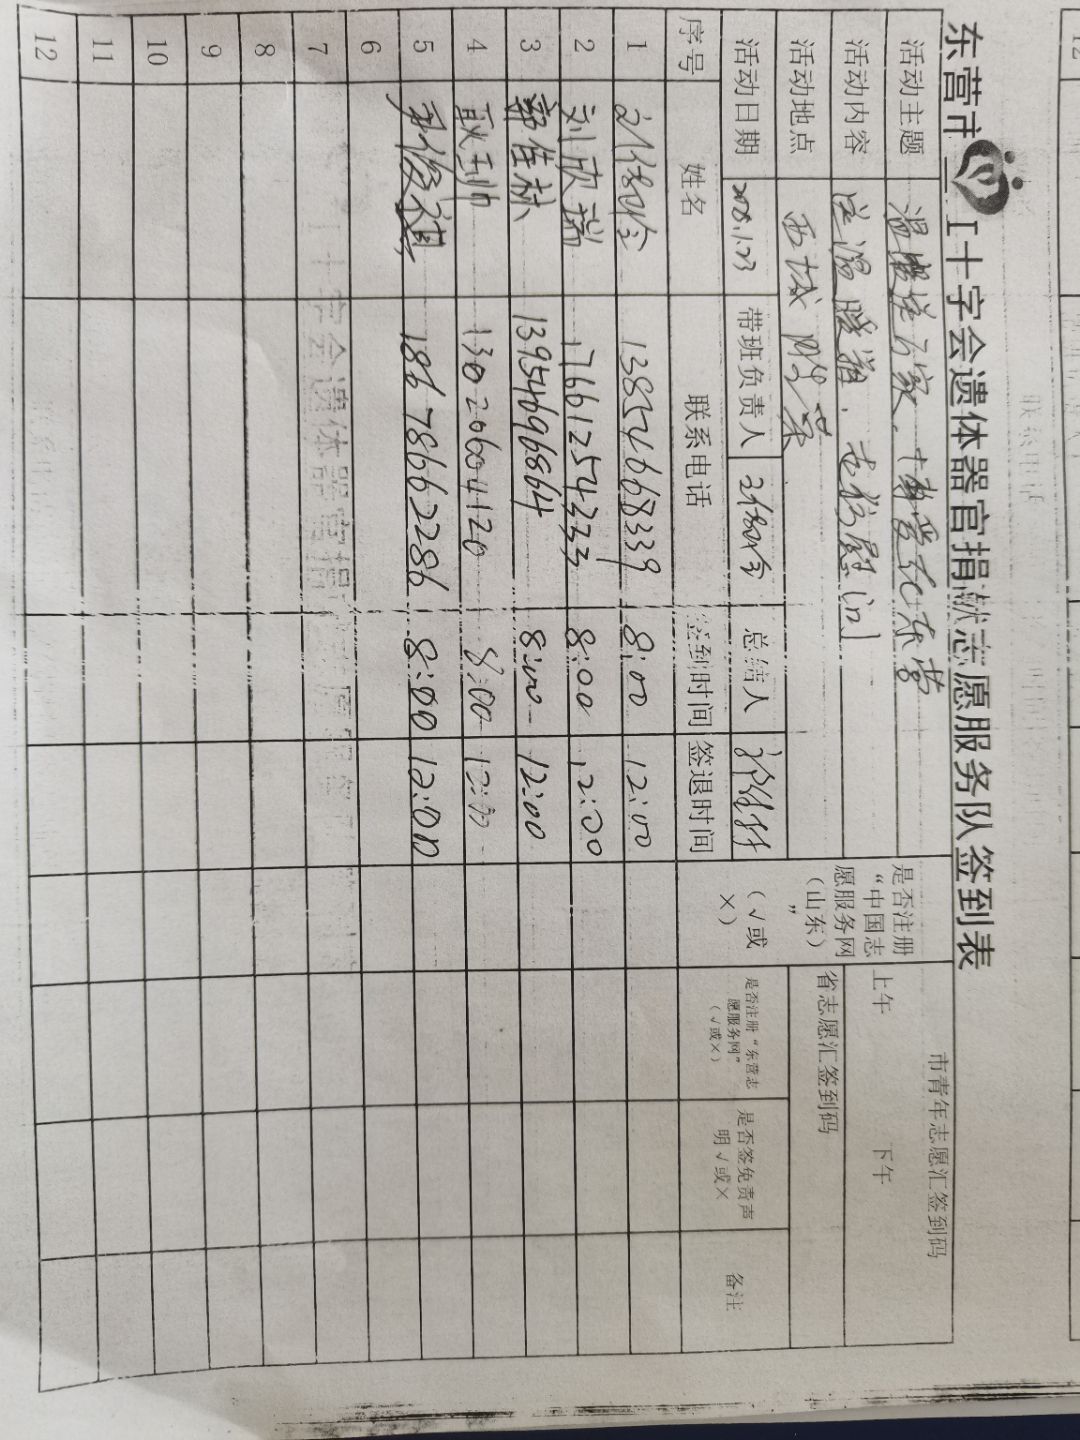 东营市 十字会遗体器官捐献志愿服务队签到表
活动主题 温暖送万家,博爱在东营
活动内容 送温暖, 走访慰问
活动地点 西城
活动日期 带班负责人 总结人
是否注册“中国志愿服务网(山东)”(√或×)
市青年志愿汇签到码
上午 下午
省志愿汇签到码
序号 姓名 联系电话 签到时间 签退时间 是否注册“东营志愿服务网”(√或×) 是否签免责声明√或× 备注
1 13854668339 8:00 12:00
2 刘欣瑞 17661254233 8:00 12:00
3 郭佳林 13954696864 8:00 12:00
4 耿利帅 13020604120 8:00 12:00
5 俊祺 18678662286 8:00 12:00
6
7
8
9
10
11
12